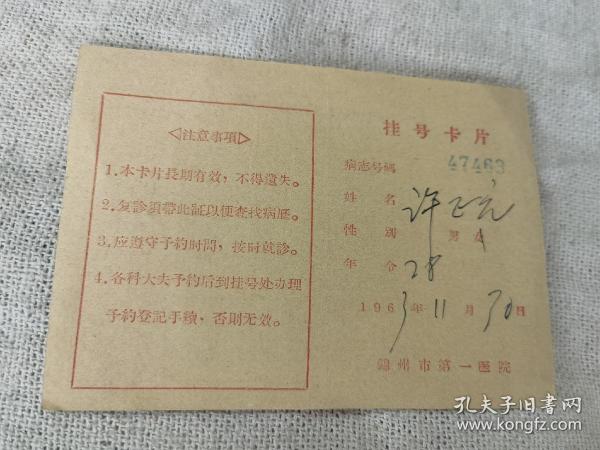 ◁注意事項▷
1.本卡片長期有效，不得遺失。
2.复診須帶此証以便查找病厯。
3.应遵守予約时間，按时就診。
4.各科大夫予約后到挂号处办理
予約登記手續，否則无效。
挂号卡片
病志号碼 47463
姓名 许正元
性別 男女
年令 28
1963年11月30日
錦州市第一医院
孔夫子旧书网
www.kongfz.com